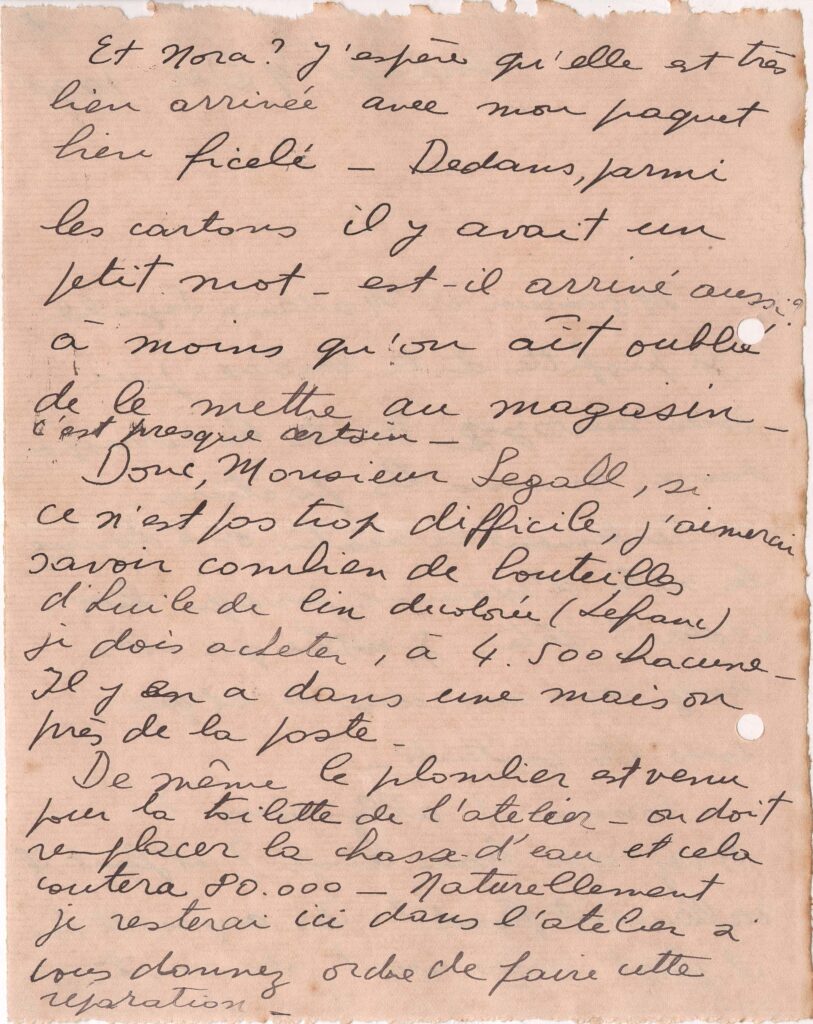 Et Nora? J'espère qu'elle est très
bien arrivée avec mon paquet
bien ficelé — Dedans, parmi
les cartons il y avait un
petit mot — est-il arrivé aussi?
à moins qu'on aît oublié
de le mettre au magasin —
c'est presque certain —
Donc, Monsieur Legall, si
ce n'est pas trop difficile, j'aimerai
savoir combien de bouteilles
d'huile de lin decolorée (Lefranc)
je dois acheter, à 4.500 chacune —
Il y en a dans une maison
près de la poste —
De même le plombier est venu
pour la toilette de l'atelier — on doit
remplacer la chasse-d'eau et cela
coutera 80.000 — Naturellement
je resterai ici dans l'atelier si
vous donnez ordre de faire cette
réparation —